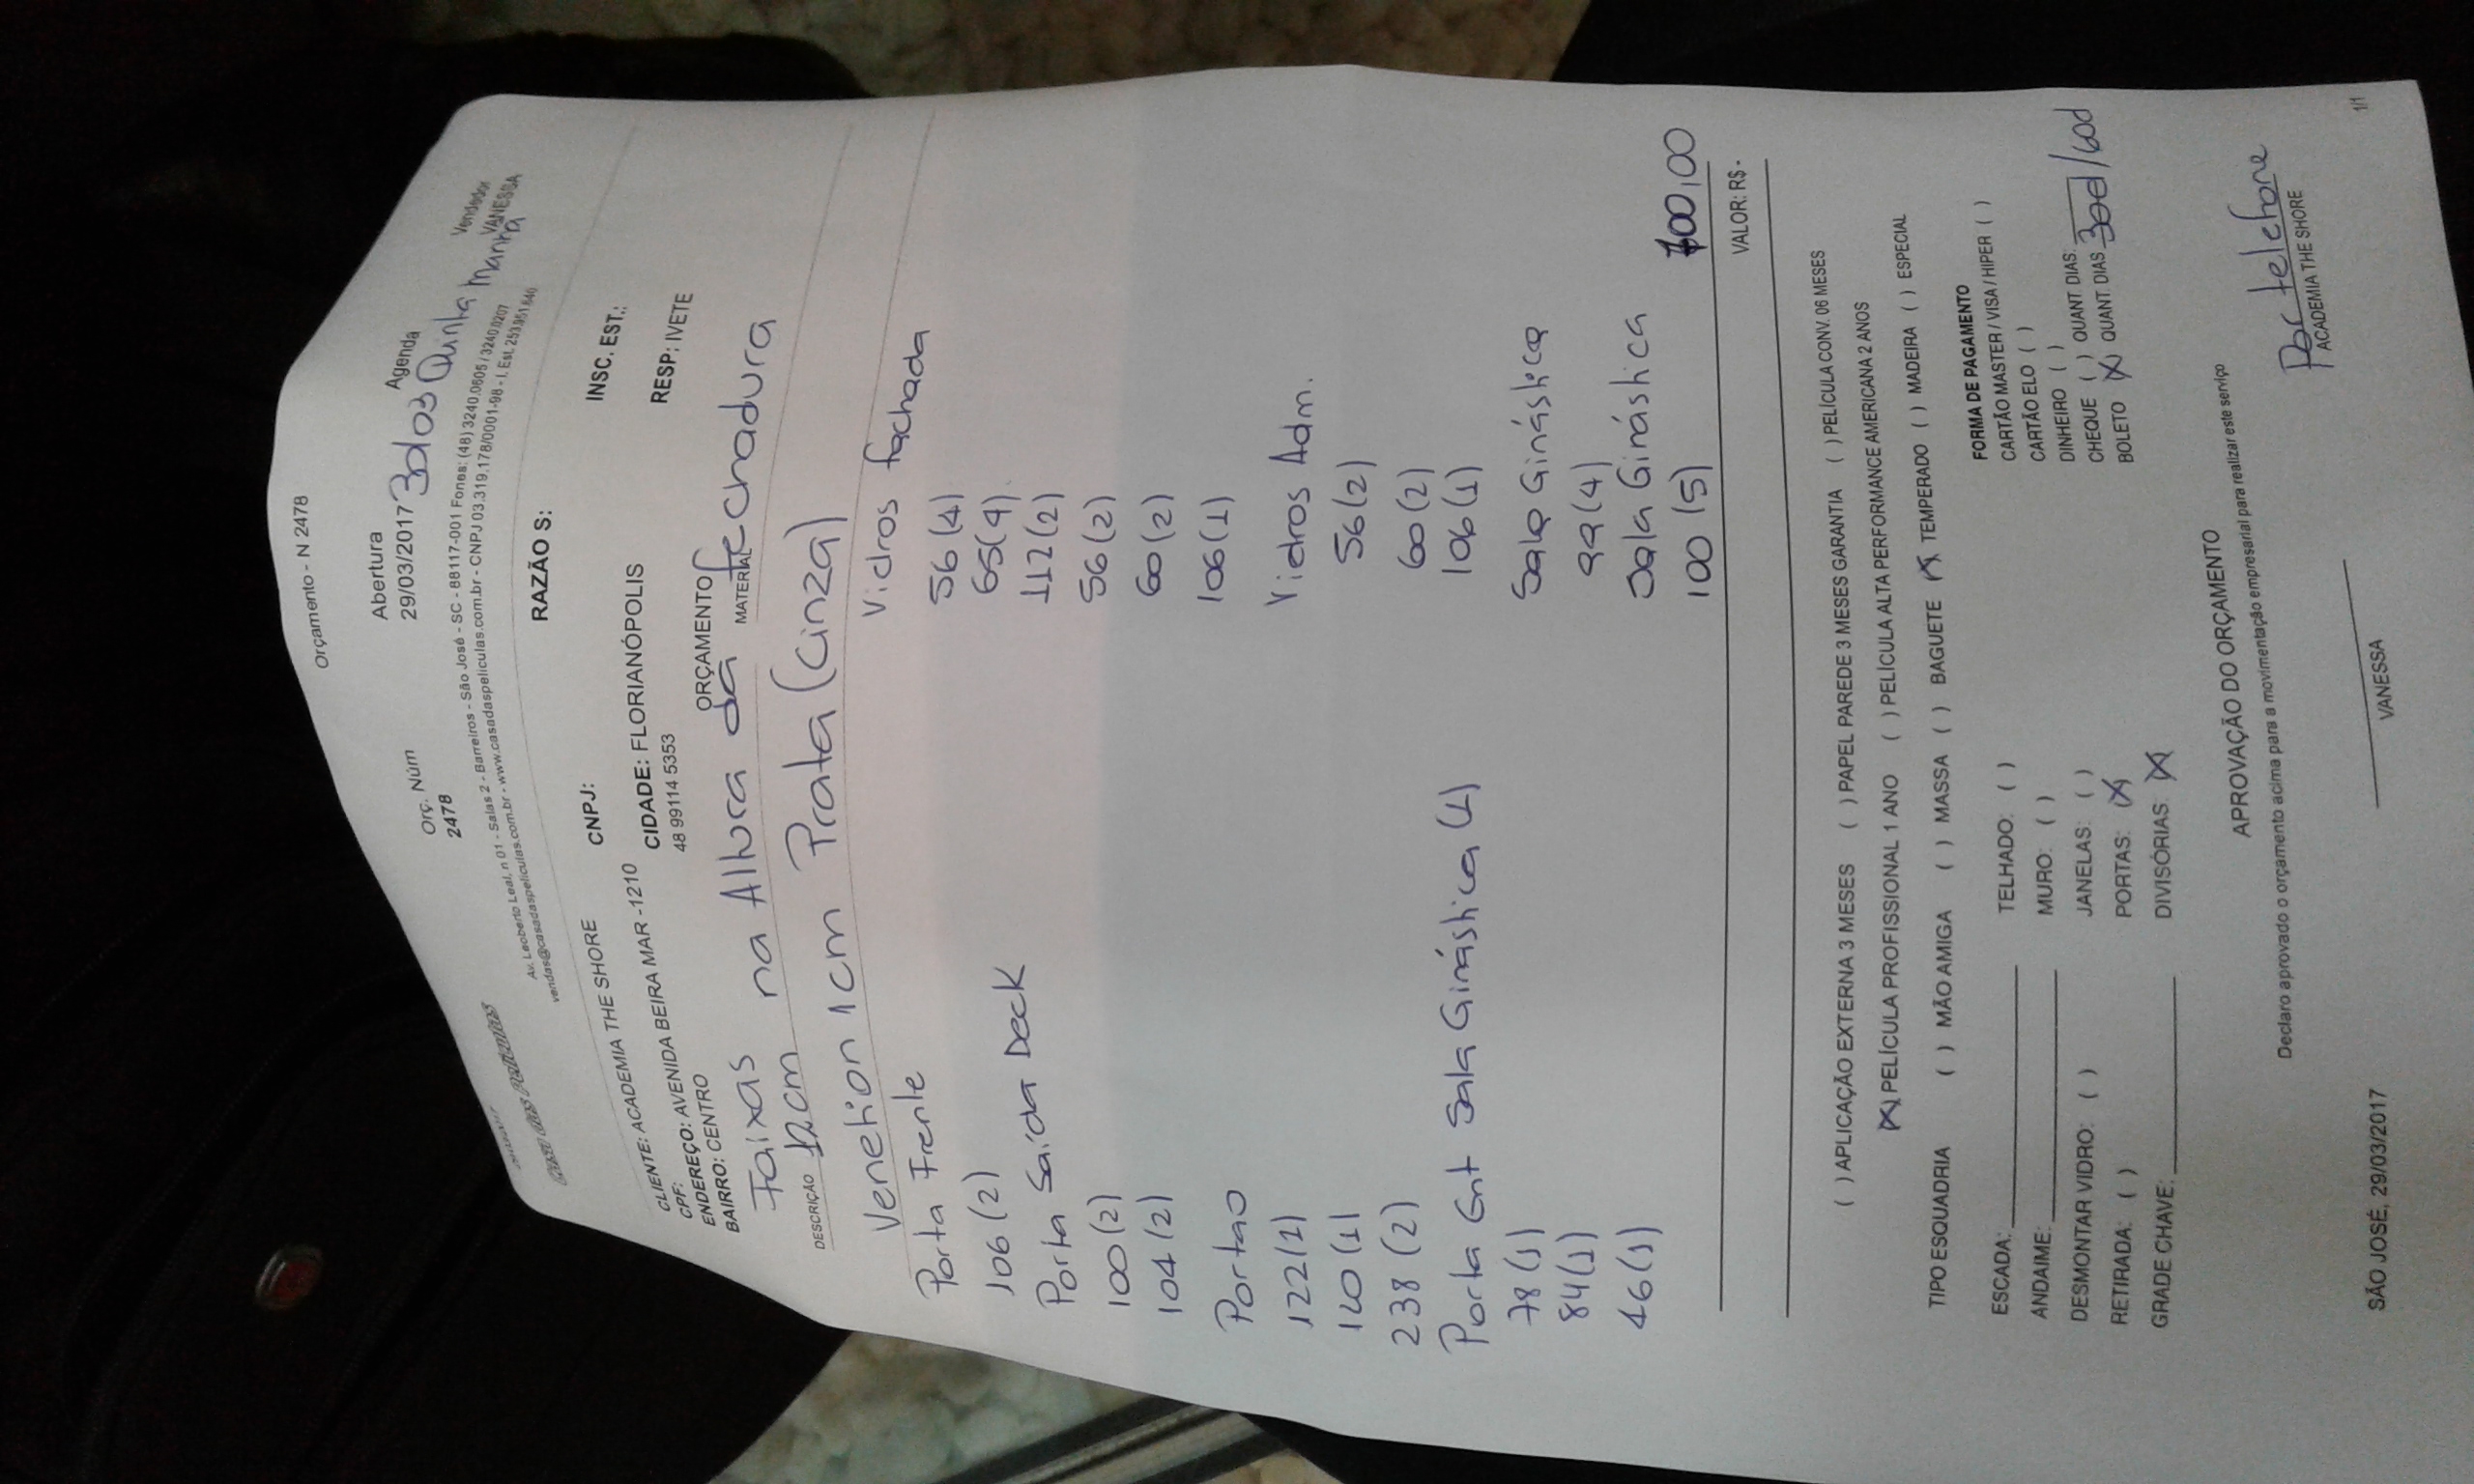 Orçamento - N 2478
Orç. Núm Abertura Agenda Vendedor
2478 29/03/2017 30/03 Quinta Manhã VANESSA
Av. Leoberto Leal, n 01 - Salas 2 - Barreiros - São José - SC - 88117-001 Fones: (48) 3240.0605 / 3240.0207
vendas@casadaspeliculas.com.br - www.casadaspeliculas.com.br - CNPJ 03.319.178/0001-98 - I. Est. 253.951.640
RAZÃO S:
CNPJ: INSC. EST.:
CLIENTE: ACADEMIA THE SHORE
CPF: CIDADE: FLORIANÓPOLIS RESP: IVETE
ENDEREÇO: AVENIDA BEIRA MAR -1210
BAIRRO: CENTRO 48 99114 5353
ORÇAMENTO
Faixas na Altura da fechadura
DESCRIÇÃO 12cm MATERIAL
Venetion 1cm Prata (Cinza)
Porta Frente Vidros fachada
106 (2) 56 (4)
Porta Saída Deck 65 (4)
100 (2) 112 (2)
104 (2) 56 (2)
60 (2)
Portao 106 (1)
122 (2)
120 (1) Vidros Adm.
238 (2) 56 (2)
Porta Ent Sala Ginástica (1) 60 (2)
78 (1) 106 (1)
84 (1) Sala Ginástica
46 (1) 99 (4)
Sala Ginástica
100 (5) 00,00
VALOR: R$-
( ) APLICAÇÃO EXTERNA 3 MESES ( ) PAPEL PAREDE 3 MESES GARANTIA ( ) PELÍCULA CONV. 06 MESES
(X) PELÍCULA PROFISSIONAL 1 ANO ( ) PELÍCULA ALTA PERFORMANCE AMERICANA 2 ANOS
TIPO ESQUADRIA ( ) MÃO AMIGA ( ) MASSA ( ) BAGUETE (X) TEMPERADO ( ) MADEIRA ( ) ESPECIAL
ESCADA: TELHADO: ( )
ANDAIME: MURO: ( )
DESMONTAR VIDRO: ( ) JANELAS: ( )
RETIRADA: ( ) PORTAS: (X)
GRADE CHAVE: DIVISÓRIAS: (X)
FORMA DE PAGAMENTO
CARTÃO MASTER / VISA / HIPER ( )
CARTÃO ELO ( )
DINHEIRO ( )
CHEQUE ( ) QUANT DIAS:
BOLETO (X) QUANT. DIAS 30d/60d
APROVAÇÃO DO ORÇAMENTO
Declaro aprovado o orçamento acima para a movimentação empresarial para realizar este serviço
Por telefone
SÃO JOSÉ, 29/03/2017 VANESSA ACADEMIA THE SHORE
1/1